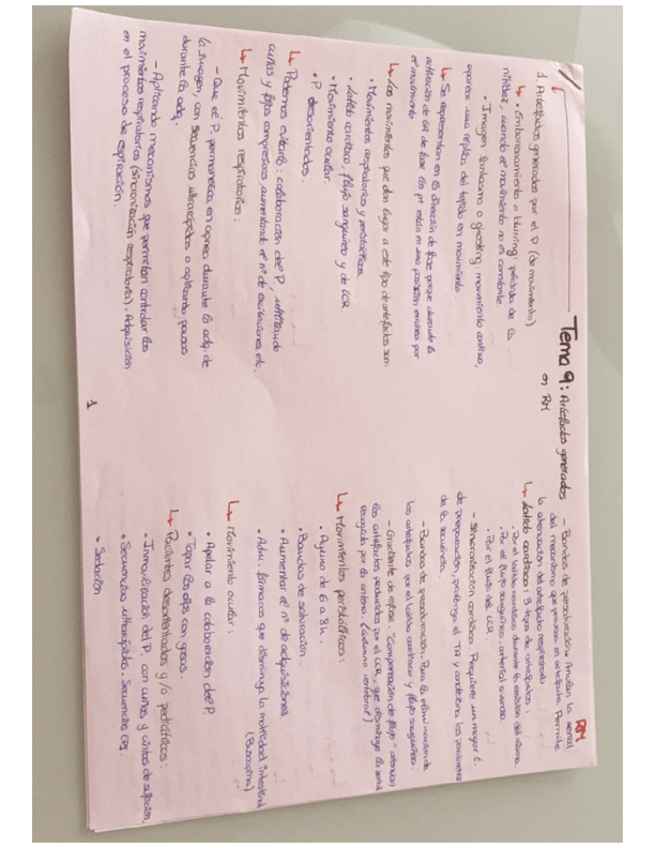 RM
Tema 9: Artefactos generados
en RM
1. Artefactos generados por el P (de movimiento)
↳ • Emborronamiento o blurring: pérdida de la
nitidez, cuando el movimiento no es constante
• Imagen fantasma o ghosting: movimiento continuo,
aparece una réplica del tejido en movimiento
↳ Se representan en la dirección de fase porque durante la
activación de GR de fase los pr están en una posición errónea por
el movimiento
↳ Los movimientos que dan lugar a este tipo de artefactos son:
• Movimientos respiratorios y peristálticos.
• Latido cardíaco, flujo sanguíneo y de LCR
• Movimiento ocular.
• P. desorientados.
↳ Podemos evitarlo: colaboración del P, utilizando
cuñas y fajas compresivas, aumentando el nº de excitaciones etc.
↳ Movimientos respiratorios:
- Que el P. permanezca en apnea durante la adq. de
la imagen, con secuencias ultrarrápidas o aplicando pausas
durante la adq.
- Aplicando mecanismos que permitan controlar los
movimientos respiratorios (sincronización respiratoria). Adquisición
en el proceso de espiración.
1
- Bandas de presaturación. Anulan la señal
del mecanismo que provoca el artefacto. Permite
la atenuación del artefacto respiratorio.
↳ Latido cardíaco: 3 tipos de artefactos:
• Por el latido cardíaco durante la emisión del mismo.
• Por el flujo sanguíneo, arterial o venoso.
• Por el flujo del LCR.
- Sincronización cardíaca. Requiere un mayor t.
de preparación, prolonga el TA y condiciona los parámetros
de la secuencia.
- Bandas de presaturación. Para la eliminación de
los artefactos por el latido cardíaco y flujo sanguíneo.
- Gradiente de refase. "Compensación de flujo" atenúan
los artefactos producidos por el LCR, que disminuye la señal
recogida por la antena. (columna vertebral)
↳ Movimientos peristálticos:
• Ayuno de 6 a 8 h.
• Bandas de saturación.
• Aumentar el nº de adquisiciones
• Adm. fármacos que disminuya la motilidad intestinal
(Buscapina)
↳ Movimiento ocular:
• Apelar a la colaboración del P.
• Tapar los ojos con gasas.
↳ Pacientes desorientados y/o pediátricos:
• Inmovilización del P. con cuñas y cintas de sujeción.
• Secuencias ultrarrápidas. Secuencias EPI.
• Sedación.